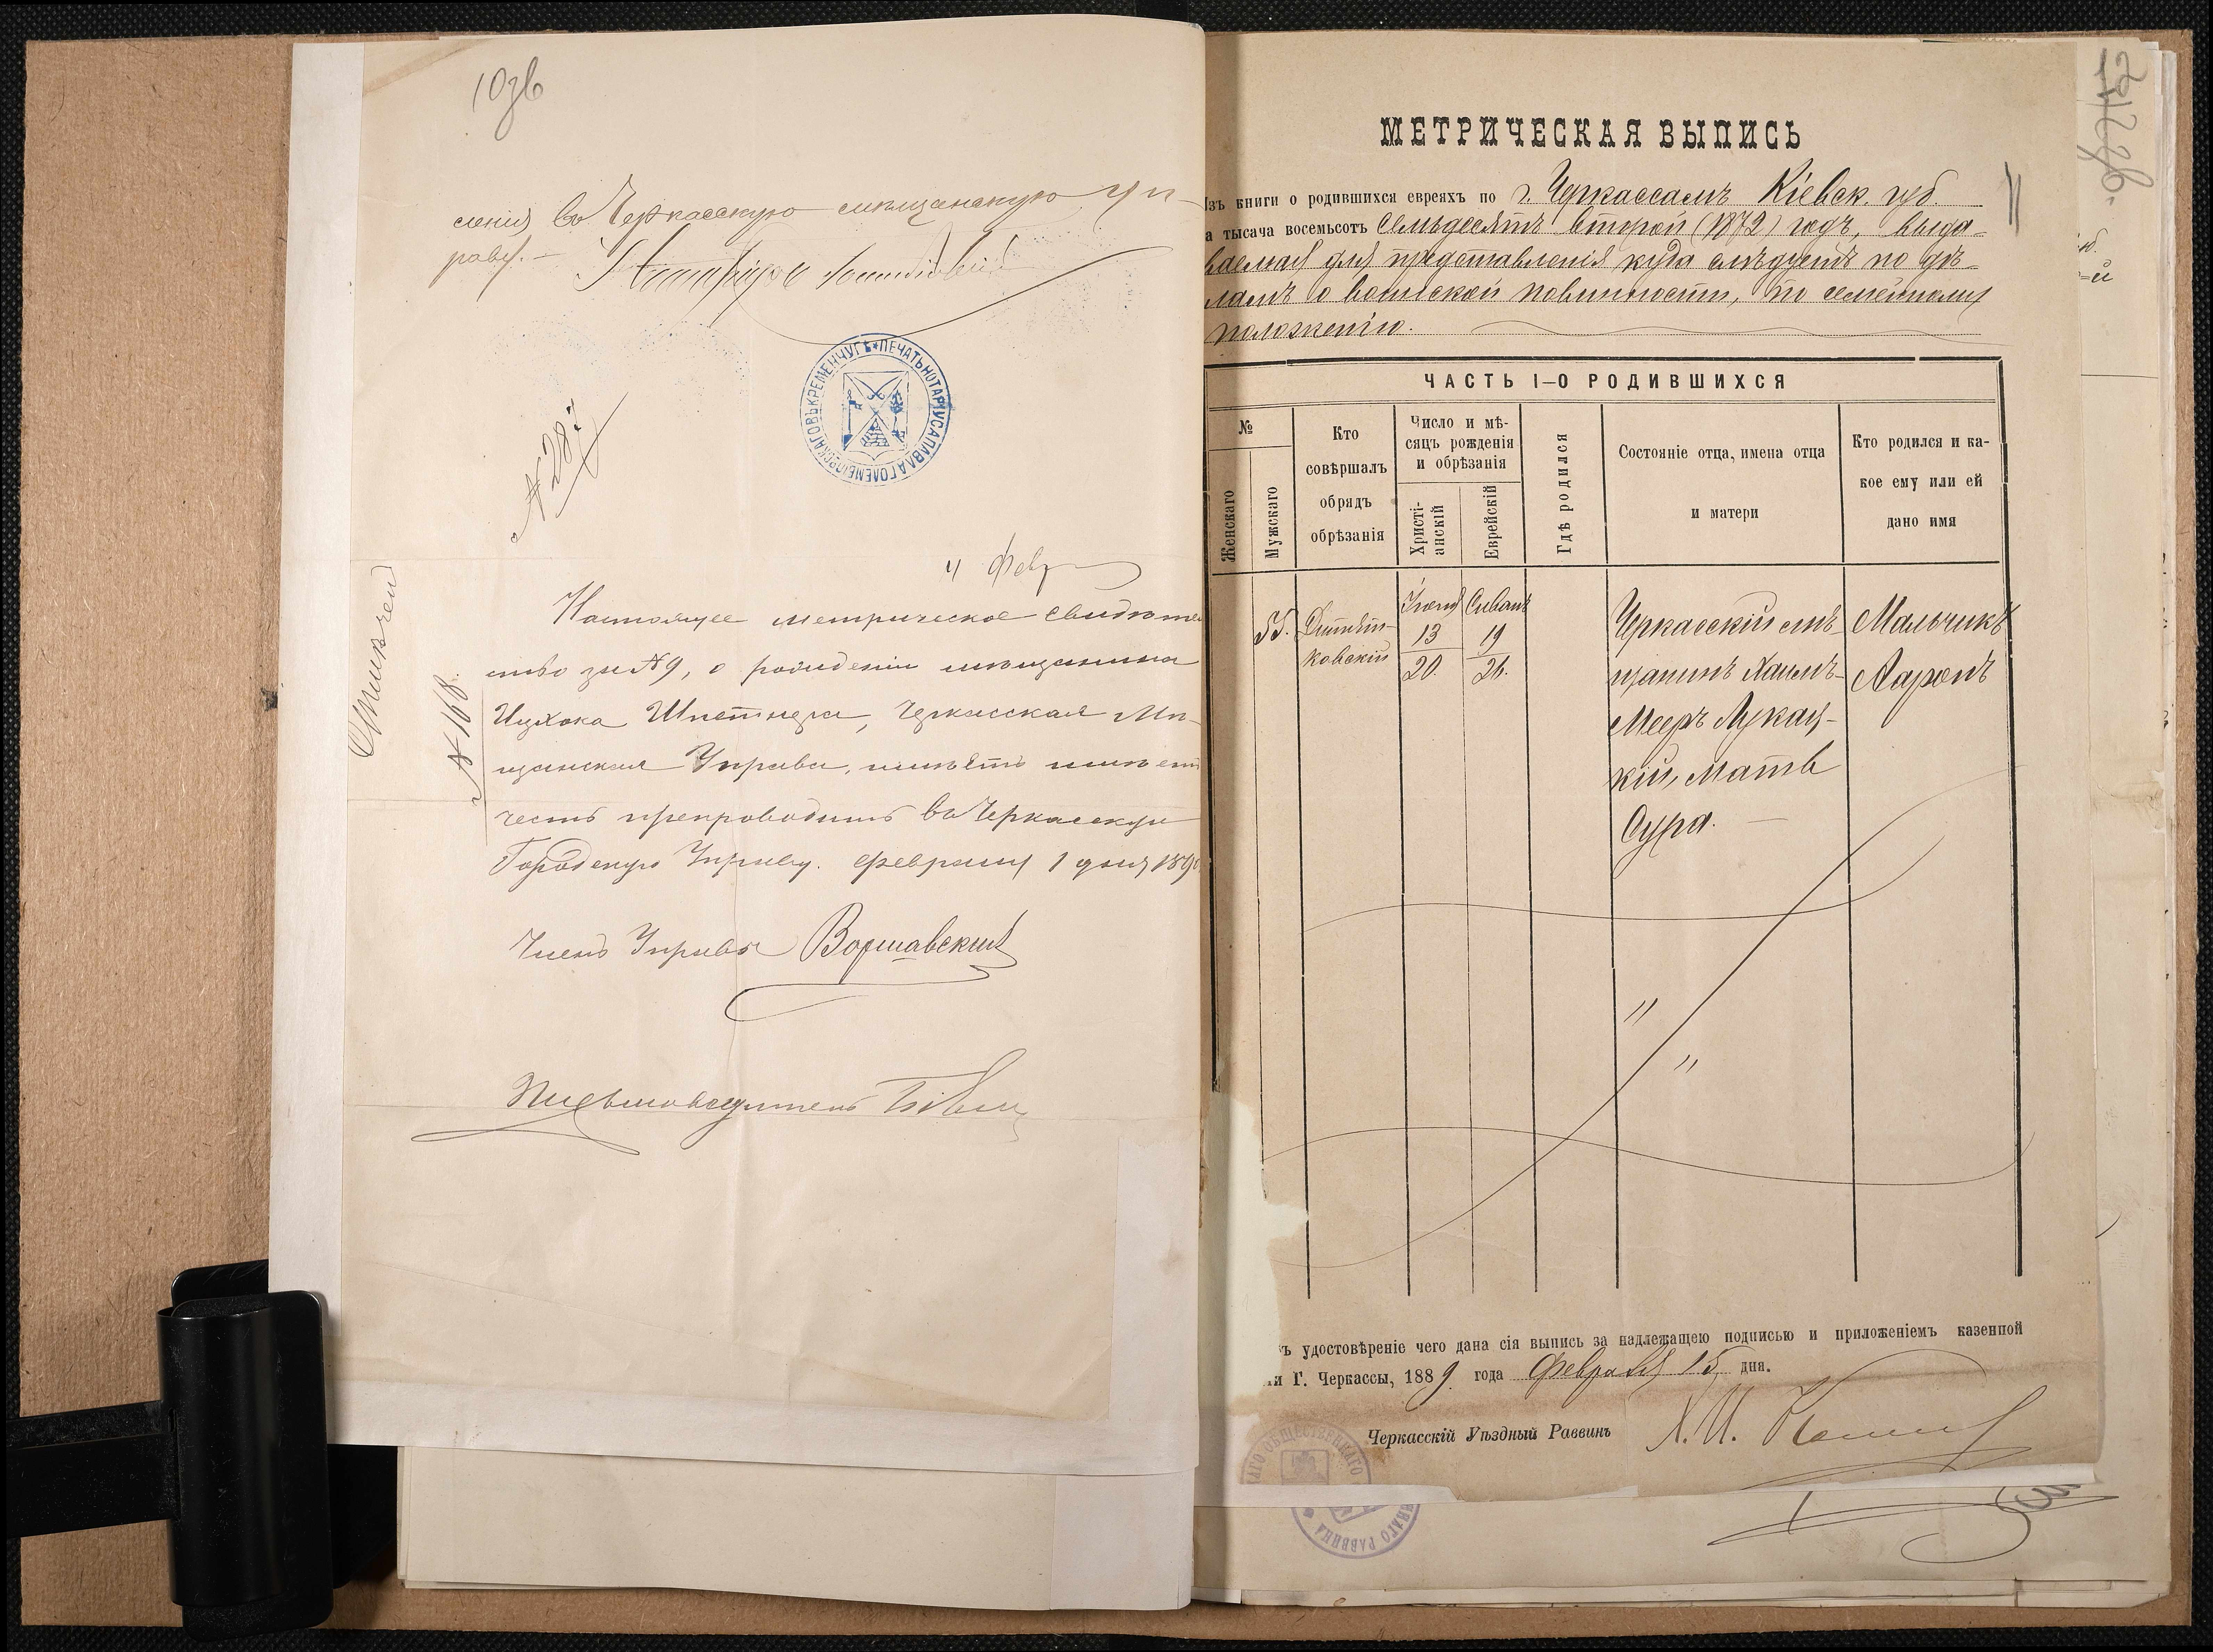 103б
сленія въ Черкасскую мѣщанскую Уп-
раву. —
Нотаріусъ
ПЕЧАТЬ НОТАРІУСА ПАВЛА ГОЛЕМБІОВСКАГО ВЪ КРЕМЕНЧУГѢ
№ 287
4 Февр
№ 168
Настоящее метрическое свидѣте
ство за № 9, о рожденіи мѣщанина
Ицхока Шпетнера, Черкасская Мѣ-
щанская Управа, имѣетъ
честь препроводить въ Черкасскую
Городскую Управу. Февраля 1 дня 189
Членъ Управы Воршавскій
Письмоводитель
МЕТРИЧЕСКАЯ ВЫПИСЬ
Изъ книги о родившихся евреяхъ по г. Черкассамъ Кіевск. губ.
а тысяча восемьсотъ семьдесятъ второй (1872) годъ, выда-
ваемая для представленія куда слѣдуетъ по дѣ-
ламъ о воинской повинности, по семейному
положенію.
ЧАСТЬ I—О РОДИВШИХСЯ
№
Женскаго
Мужскаго
Кто
совѣршалъ
обрядъ
обрѣзанія
Число и мѣ-
сяцъ рожденія
и обрѣзанія
Христі-
анскій
Еврейскій
Гдѣ родился
Состояніе отца, имена отца
и матери
Кто родился и ка-
кое ему или ей
дано имя
55.
Дитят-
ковскій
Іюня
13
20.
Сивана
19
26.
Черкасскій мѣ-
щанинъ Хаимъ-
Мееръ Лукац-
кій, мать
Сура.
Мальчикъ
Ааронъ
ъ удостовѣреніе чего дана сія выпись за надлежащею подписью и приложеніемъ казенной
и Г. Черкассы, 1889 года Февраля 15 дня.
Черкасскій Уѣздный Раввинъ Х. И.
АГО ОБЩЕСТВЕННАГО
ННАГО РАВВИНА